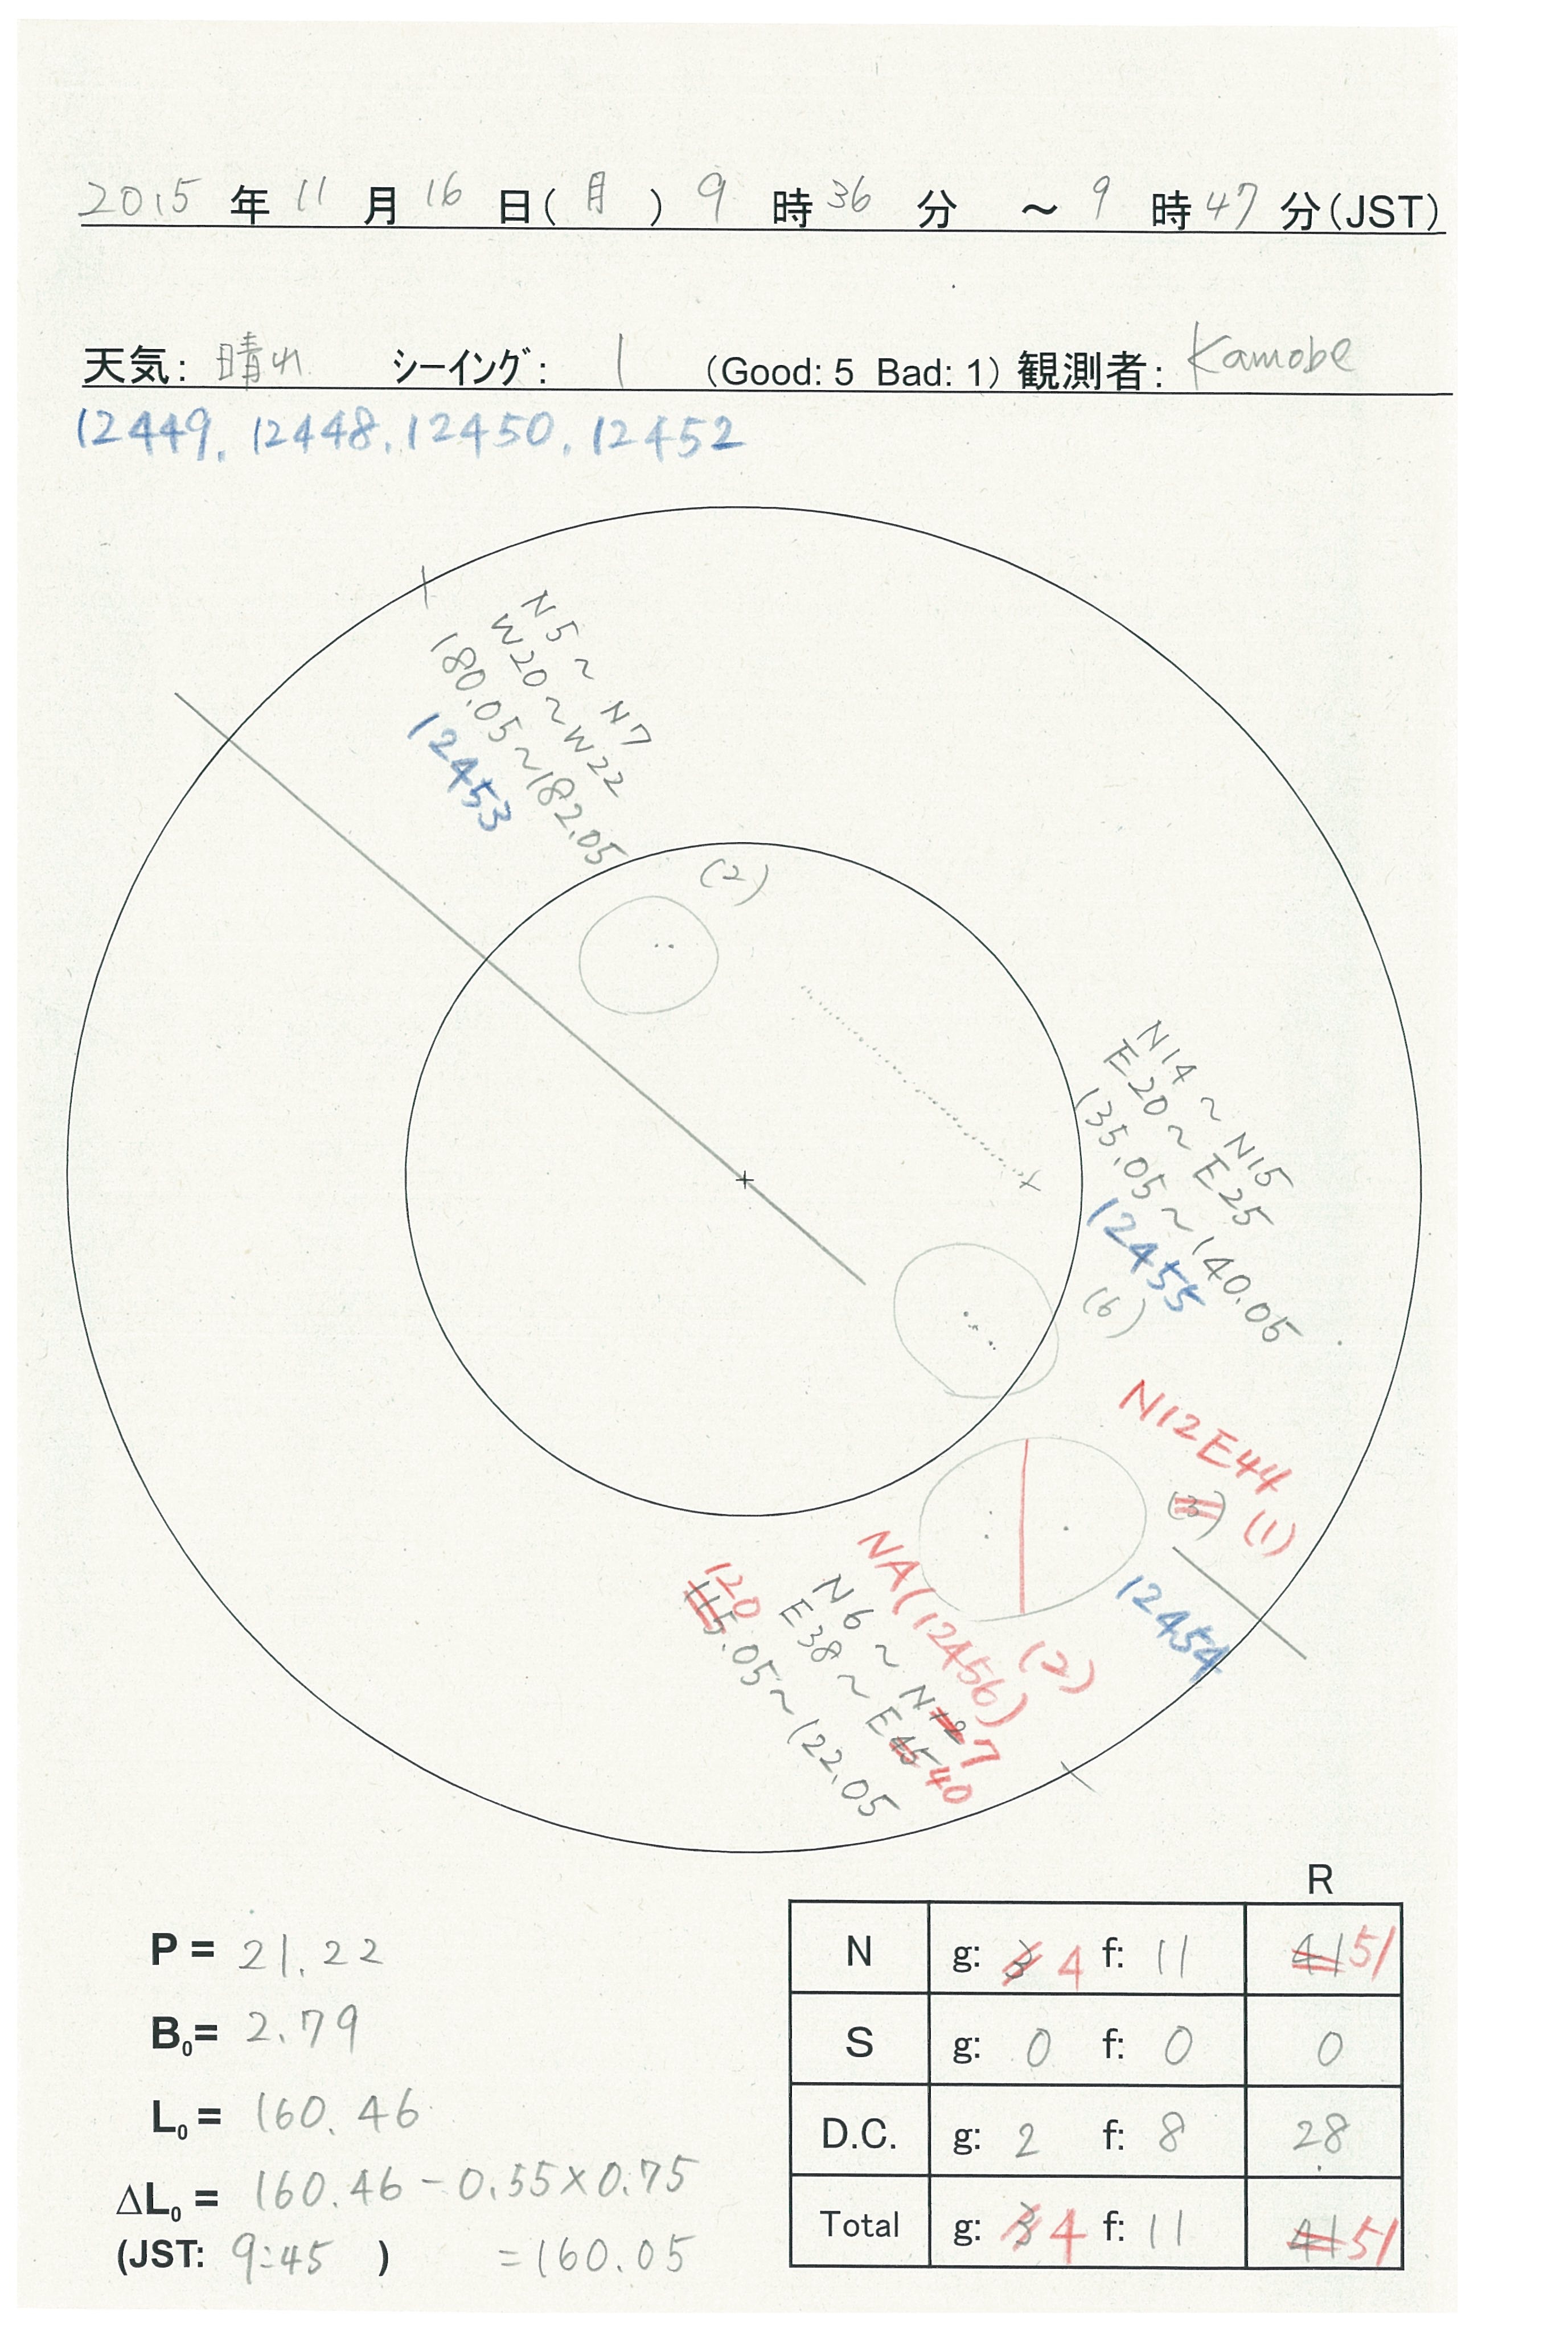 2015 年 11 月 16 日(月) 9 時 36 分 ～ 9 時 47 分(JST)
天気: 晴れ シーイング: 1 (Good: 5 Bad: 1) 観測者: Kamobe
12449, 12448, 12450, 12452
N5～N7
W20～W22
180.05～182.05
12453
(2)
N14～N15
E20～E25
135.05～140.05
12455
(6)
N12E44
(3) (1)
12454
NA(12456) (2)
N6～N12 7
E38～E45 40
120
115.05～122.05
R
P = 21.22
B0= 2.79
L0 = 160.46
ΔL0 = 160.46 - 0.55×0.75
(JST: 9:45 ) =160.05
N g: 3 4 f: 11 41 51
S g: 0 f: 0 0
D.C. g: 2 f: 8 28
Total g: 3 4 f: 11 41 51